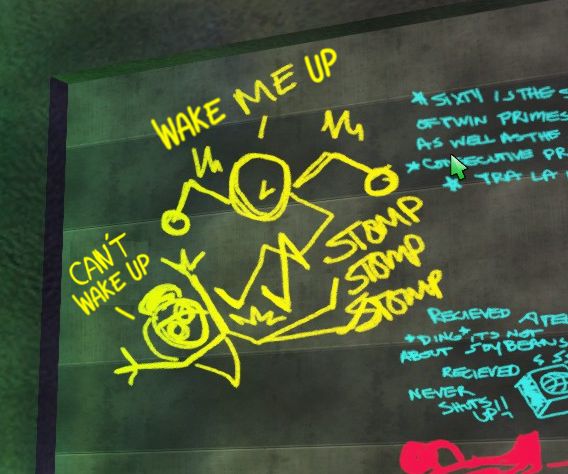 WAKE ME UP
CAN'T
WAKE UP
STOMP
STOMP
STOMP
*SIXTY IS THE
OF TWIN PRIMES
AS WELL AS THE
*CONSECUTIVE PR
* TRA LA
RECIEVED A TE
*DING* IT'S NOT
ABOUT SOYBEANS
RECIEVED
NEVER
SHUTS
UP!!